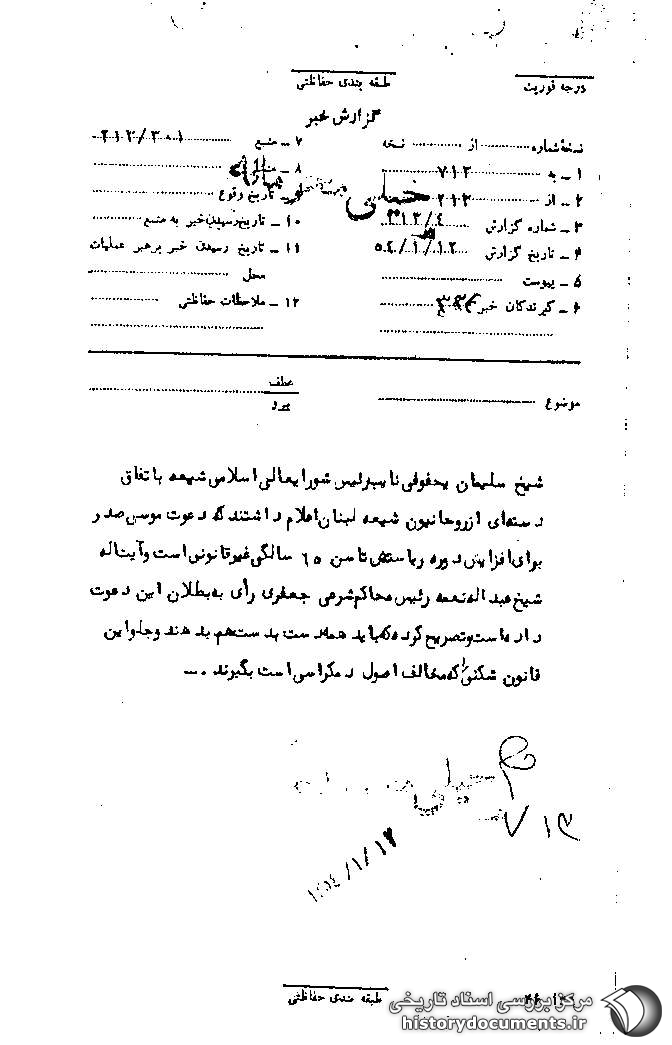 درجه فوریت
طبقه بندی حفاظتی
گزارش خبر
نسخهٔ شماره .......... از .......... نسخه
۱ ــ به ۷۱۲
۲ ــ از ۲۱۲
۳ ــ شماره گزارش ۲۱۲/۴
۴ ــ تاریخ گزارش ۵۴/۱/۱۲
۵ ــ پیوست
۶ ــ گیرندگان خبر
۷ ــ منبع ۲۱۲/۳۰۱
۸ ــ
خیلی محرمانه
۹ ــ تاریخ وقوع
۱۰ ــ تاریخ رسیدن خبر به منبع
۱۱ ــ تاریخ رسیدن خبر برهبر عملیات
محل
۱۲ ــ ملاحظات حفاظتی
موضوع
عطف
پیرو
شیخ سلیمان یحفوفی نایب رئیس شورایعالی اسلامی شیعه باتفاق
دسته‌ای ازروحانیون شیعه لبنان اعلام داشتند که دعوت موسی صدر
برای افزایش دوره ریاستش تا سن ۶۵ سالگی غیرقانونی است وآیت‌اله
شیخ عبداله نعمه رئیس محاکم شرعی جعفری رأی به بطلان این دعوت
داده است وتصریح کرده که باید همه دست بدست هم بدهند وجلو این
قانون شکنی را که مخالف اصول دمکراسی است بگیرند .ــ
خیلی محرمانه
۷۱۳
۱۳۵۴/۱/۱۲
طبقه بندی حفاظتی
مرکز بررسی اسناد تاریخی
historydocuments.ir